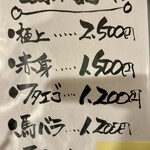 ・極上……2,500円
・赤身……1,500円
・フタエゴ…1,200円
・馬バラ……1,200円